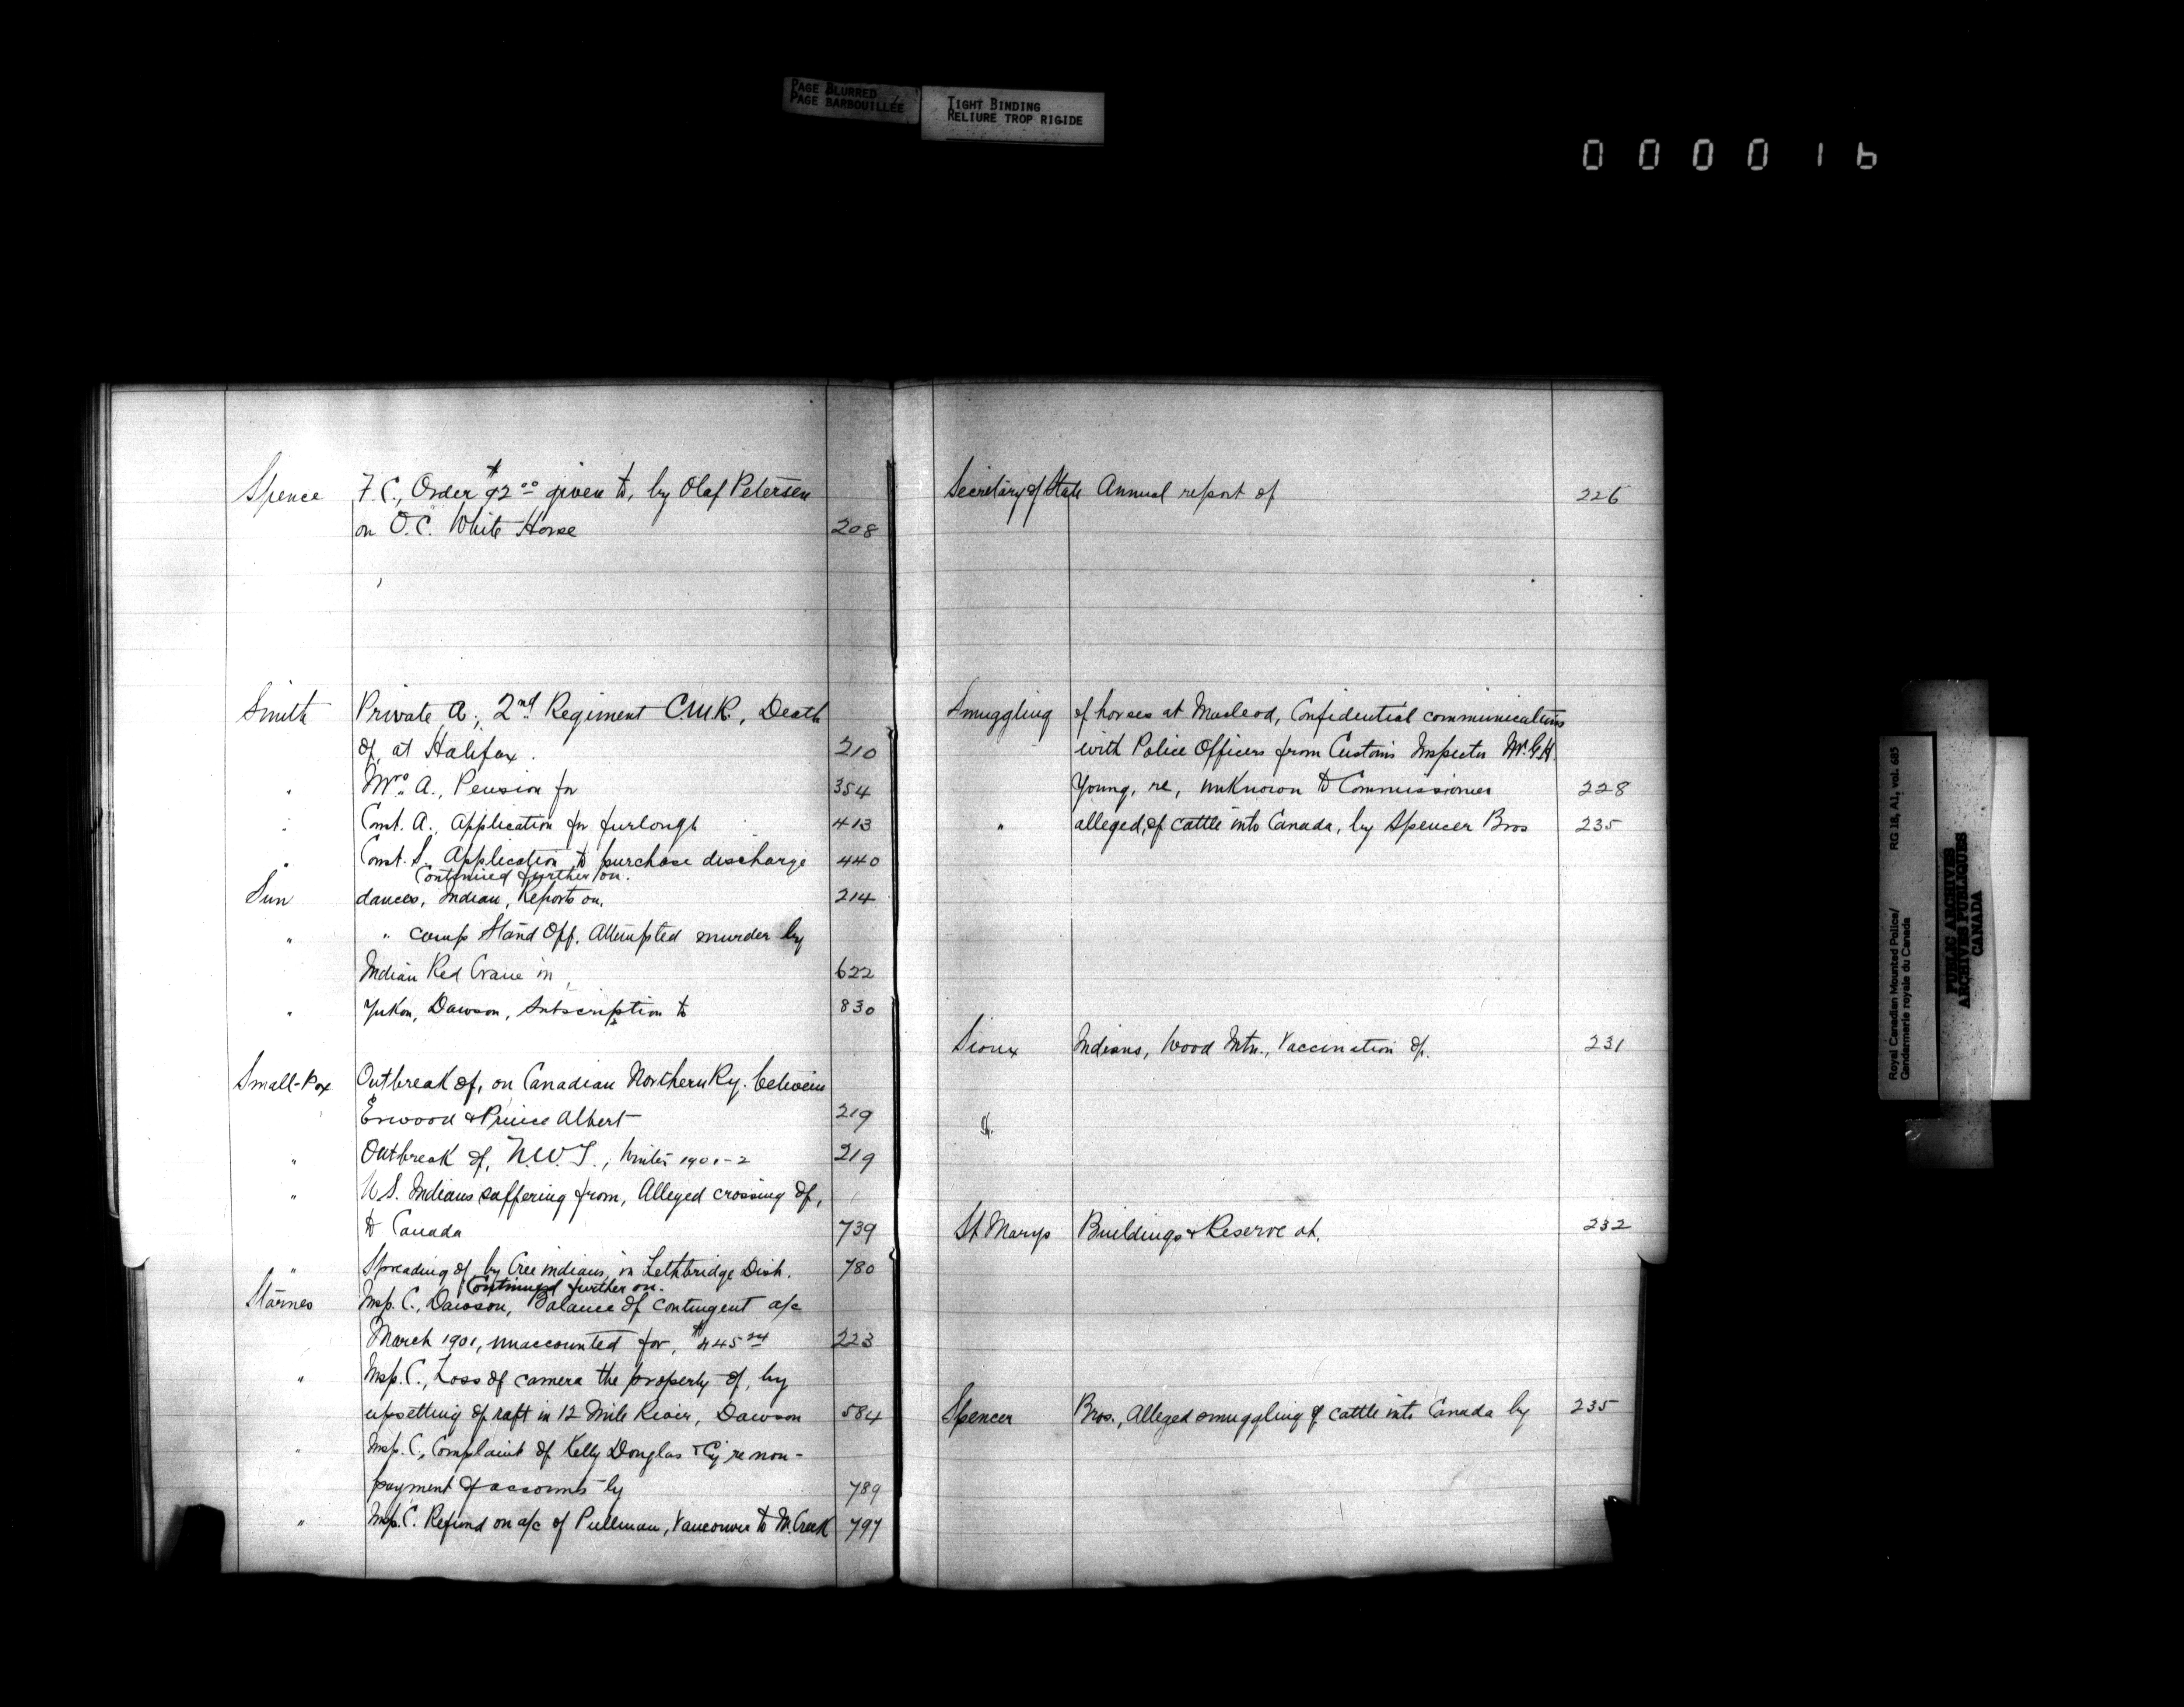 PAGE BLURRED
PAGE BARBOUILLÉE
TIGHT BINDING
RELIURE TROP RIGIDE
000016
Spence F. C., Order $92.00 given to, by Olaf Petersen
on O.C. White Horse 208
Smith Private A., 2nd Regiment C.M.R., Death
of, at Halifax. 210
" Mrs. A., Pension for 354
" Const. A., Application for furlough 413
" Const. S., Application to purchase discharge 440
Continued further on.
Sun dances, Indian, Reports on, 214
" " camp Stand Off, Attempted murder by
Indian Red Crane in, 622
" Yukon, Dawson, Subscription to 830
Small-Pox Outbreak of, on Canadian Northern Ry. between
Erwood & Prince Albert 219
" Outbreak of, N.W.T., Winter 1901-2 219
" U.S. Indians suffering from, Alleged crossing of,
to Canada 739
" Spreading of by Cree indians, in Lethbridge Dist. 780
Continued further on.
Starnes Insp. C., Dawson, Balance of contingent a/c
March 1901, unaccounted for, 223
" Insp. C., Loss of camera the property of, by
upsetting of raft in 12 Mile River, Dawson 584
" Insp. C., Complaint of Kelly Douglas & Cy re non-
payment of accounts by 789
" Insp. C. Refund on a/c of Pullman, Vancouver to M. Creek 797
Secretary of State Annual report of 226
Smuggling of horses at Macleod, Confidential communications
with Police Officers from Customs Inspector Mr. G.H.
Young, re, unknown to Commissioner 228
" alleged, of cattle into Canada, by Spencer Bros 235
Sioux Indians, Wood Mtn., Vaccination of. 231
St.
St Marys Buildings & Reserve at. 232
Spencer Bros., Alleged smuggling of cattle into Canada by 235
Royal Canadian Mounted Police/
Gendarmerie royale du Canada
RG 18, A1, vol. 685
PUBLIC ARCHIVES
ARCHIVES PUBLIQUES
CANADA